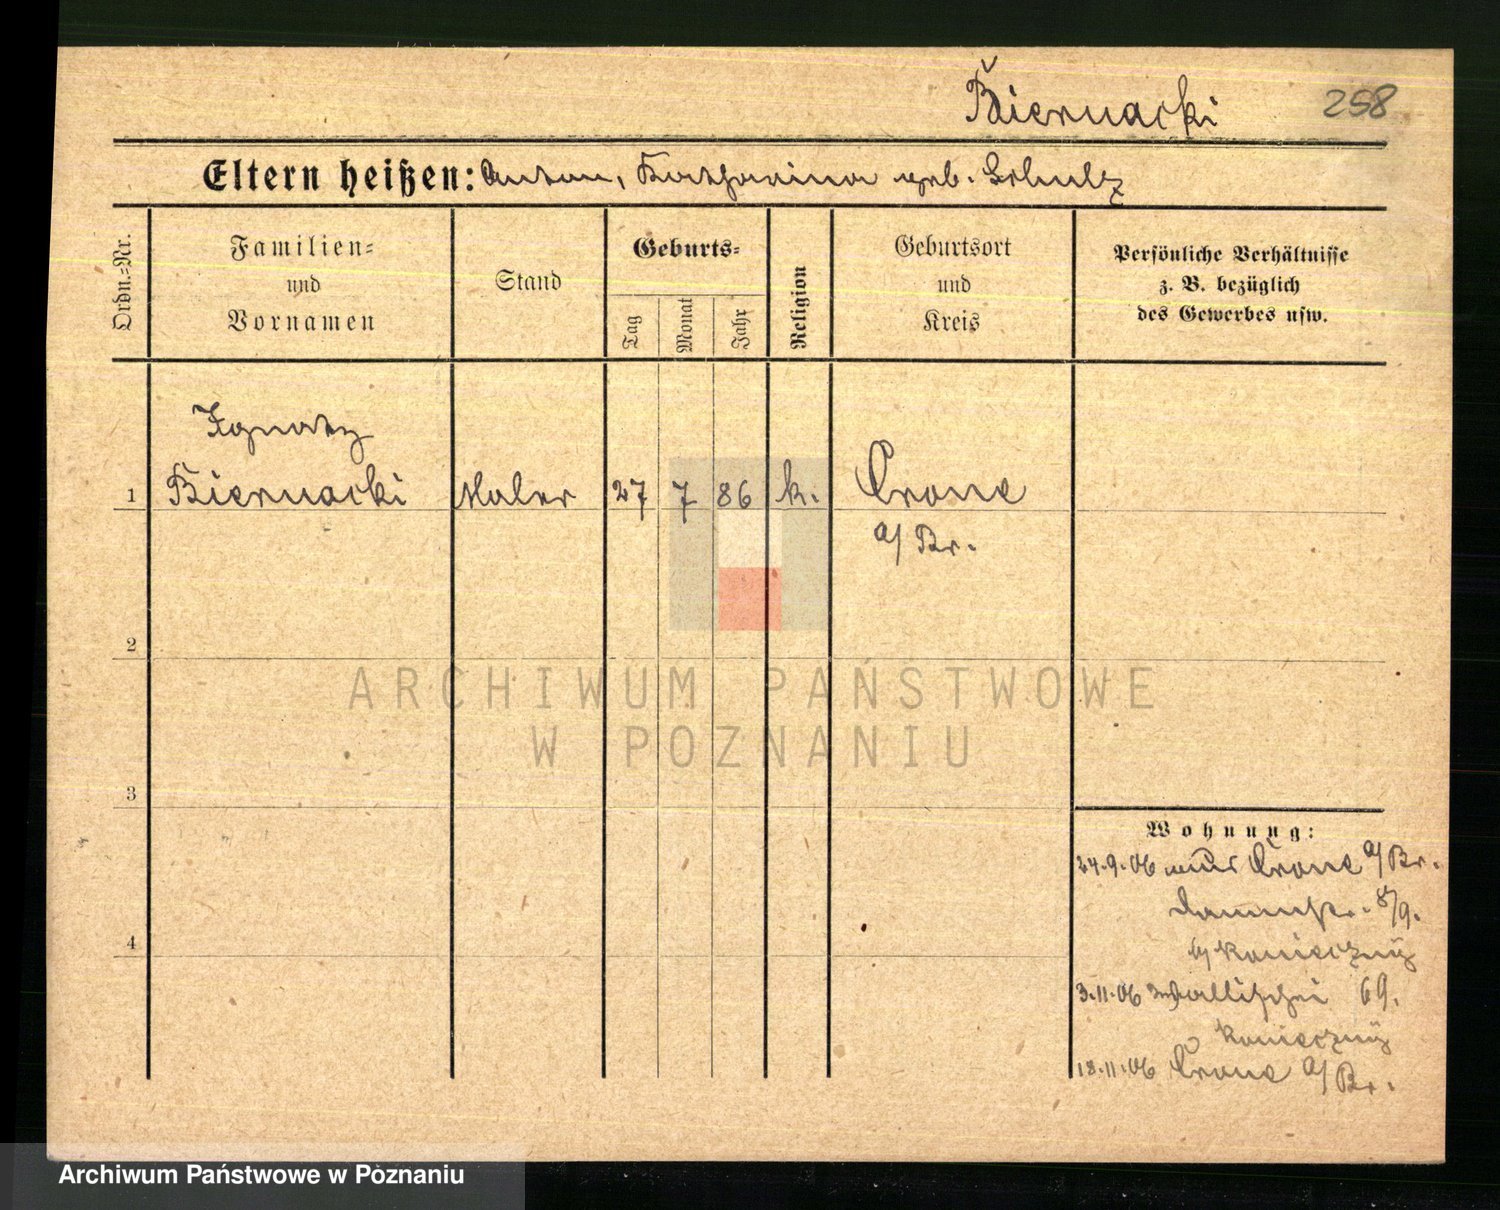 Biernacki 258
Eltern heißen: Anton, Katharina geb. Schulz
Ordn.=Nr.
Familien=
und
Vornamen
Stand
Geburts=
Tag
Monat
Jahr
Religion
Geburtsort
und
Kreis
Persönliche Verhältnisse
z. B. bezüglich
des Gewerbes usw.
Ignatz
1 Biernacki Maler 27 7 86 k. Crone
a/Br.
2
ARCHIWUM PAŃSTWOWE
W POZNANIU
3
Wohnung:
24.9.06 aus Crone a/Br.
8/9.
4
Konieczny
3.11.06 Wallischei 69.
Konieczny
18.11.06 Crone a/Br.
Archiwum Państwowe w Poznaniu